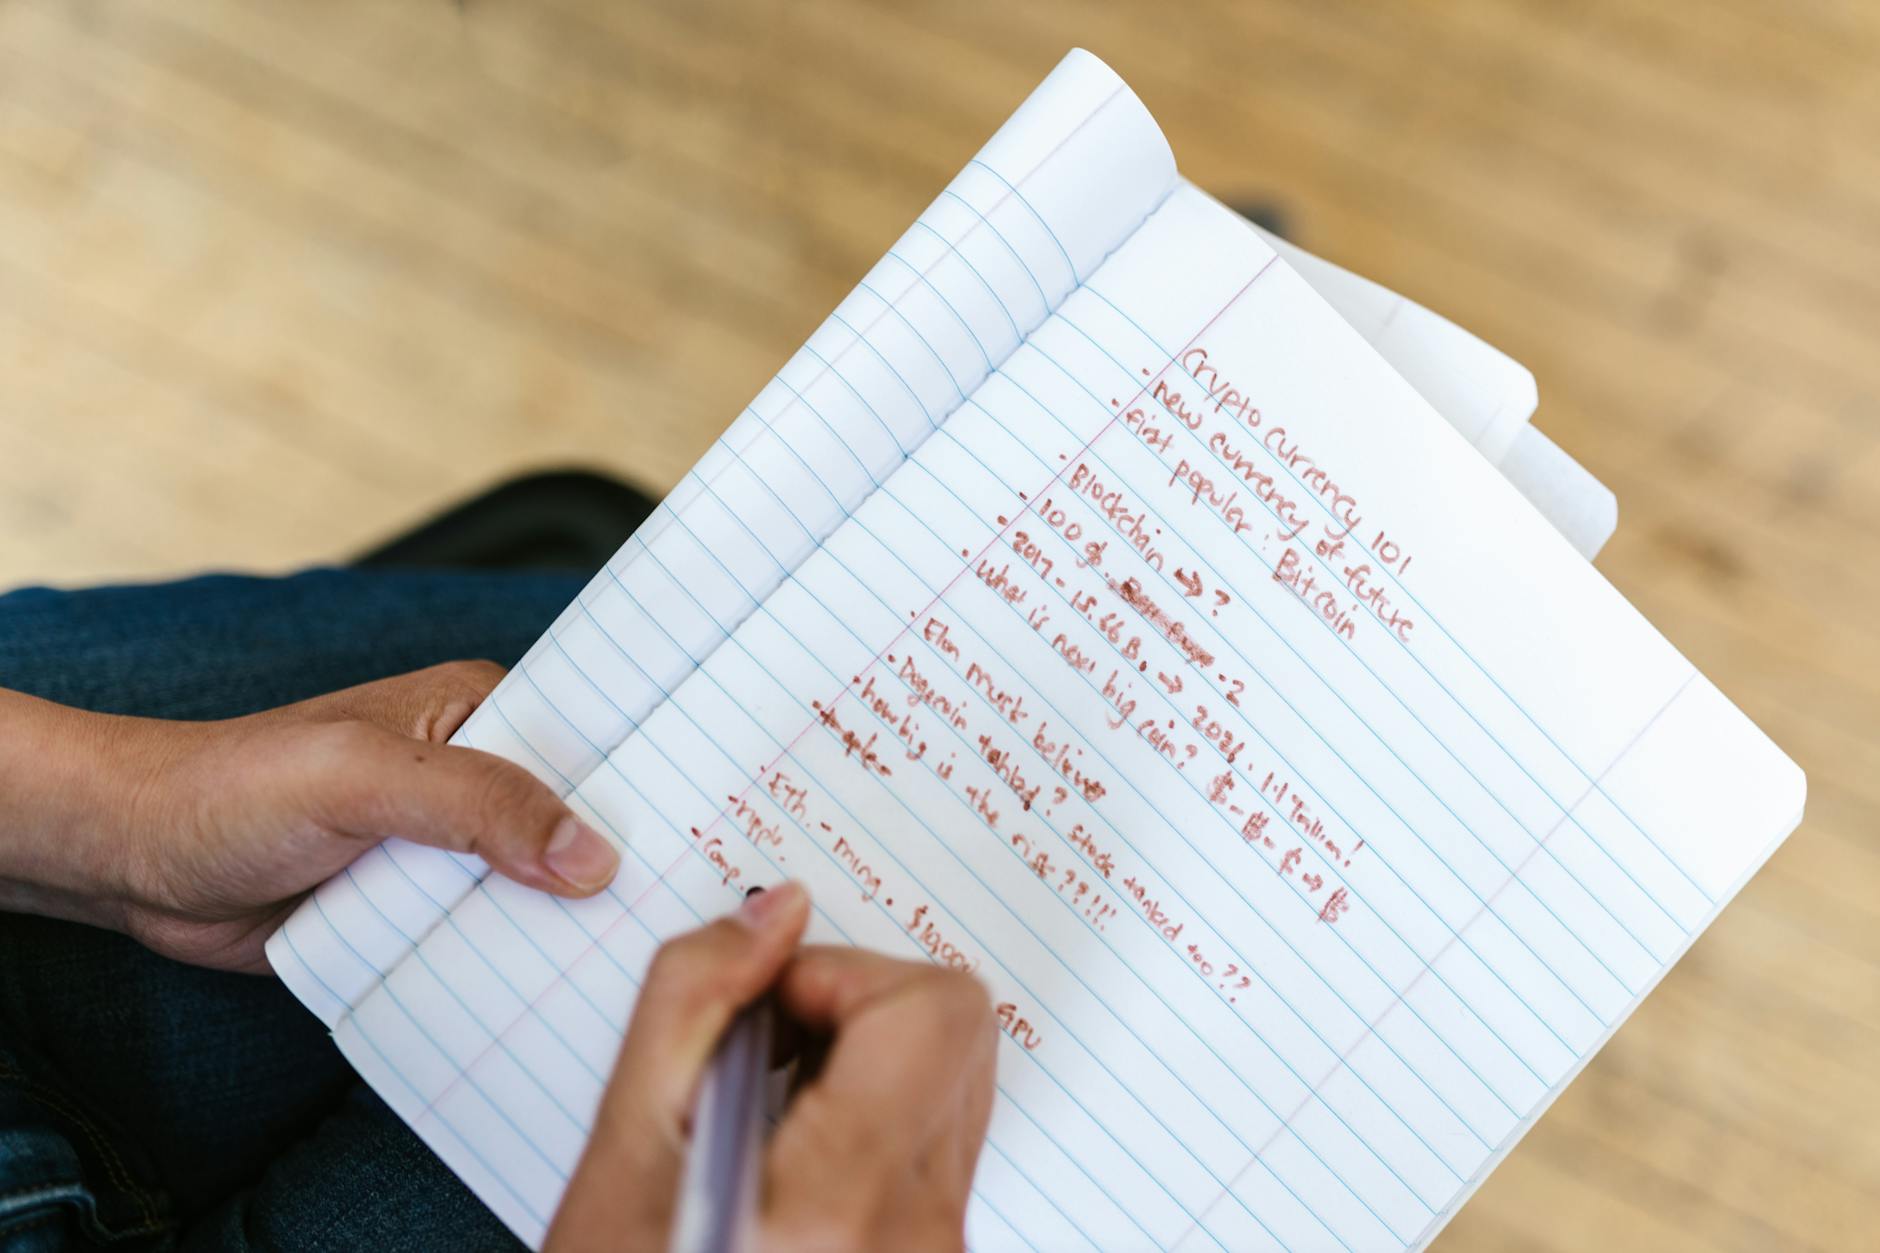 Crypto Currency 101
- new currency of future
- first popular : Bitcoin
- Blockchain → ?
- 100 $. - 2
- 2017 - 15.66 B. → 2021. 1.1 Trillion!
- what is next big coin? $-$-$→$
- Elon musk believe
- Dogecoin tanked? stock tanked too??
- how big is the risk ??!!!
- Eth. - ming. $1,000
- ripple.
- Comp.
GPU